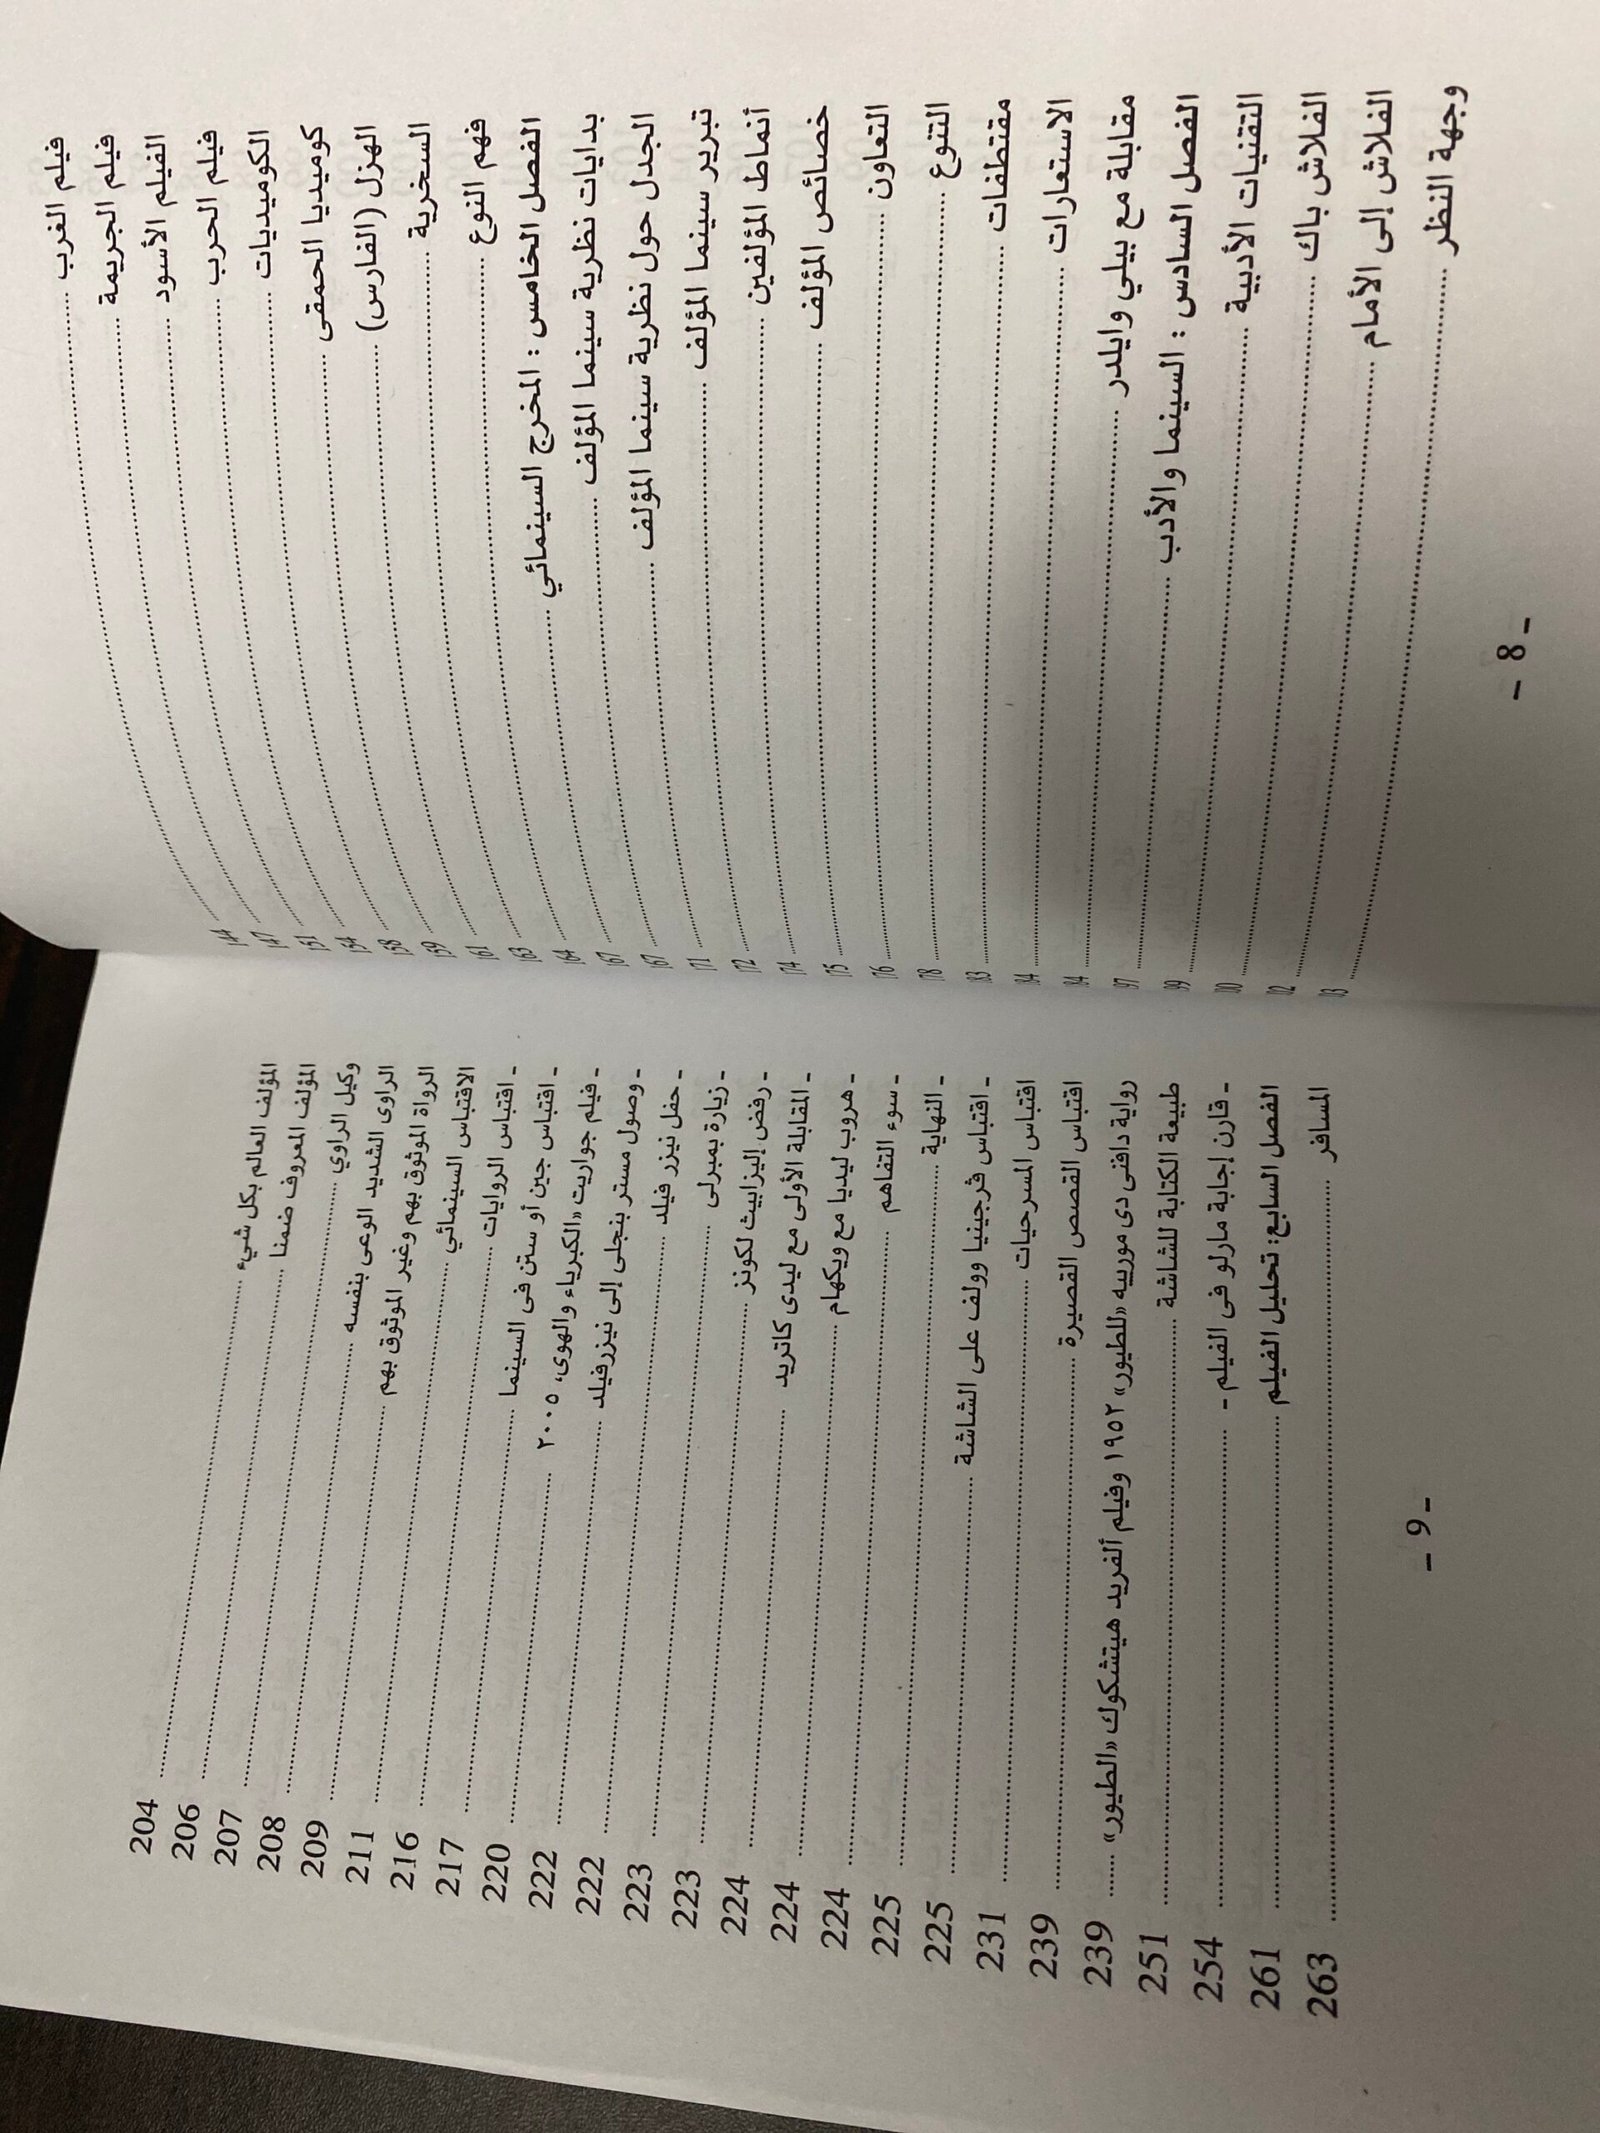 فيلم الغرب ........ 144
فيلم الجريمة ........ 147
الفيلم الأسود ........ 151
فيلم الحرب ........ 154
الكوميديات ........ 158
كوميديا الحمقى ........ 159
الهزل (الفارس) ........ 161
السخرية ........ 163
فهم النوع ........ 164
الفصل الخامس : المخرج السينمائي ........ 167
بدايات نظرية سينما المؤلف ........ 167
الجدل حول نظرية سينما المؤلف ........ 171
تبرير سينما المؤلف ........ 172
أنماط المؤلفين ........ 174
خصائص المؤلف ........ 175
التعاون ........ 176
التنوع ........ 178
مقتطفات ........
الاستعارات ........
مقابلة مع بيلي وايلدر ........
الفصل السادس : السينما والأدب ........
التقنيات الأدبية ........
الفلاش باك ........
الفلاش إلى الأمام ........
وجهة النظر ........
- 8 -
المؤلف العالم بكل شيء ........ 204
المؤلف المعروف ضمنا ........ 206
وكيل الراوي ........ 207
الراوى الشديد الوعى بنفسه ........ 208
الرواة الموثوق بهم وغير الموثوق بهم ........ 209
الاقتباس السينمائي ........ 211
- اقتباس الروايات ........ 216
- اقتباس جين أوستن فى السينما ........ 217
- فيلم جواريت «الكبرياء والهوى، ٢٠٠٥ ........ 220
- وصول مستر بنجلى إلى نيزرفيلد ........ 222
- حفل نيزر فيلد ........ 222
- زيارة بمبرلى ........ 223
- رفض إليزابيث لكونز ........ 223
- المقابلة الأولى مع ليدى كاتريد ........ 224
- هروب ليديا مع ويكهام ........ 224
- سوء التفاهم ........ 224
- النهاية ........ 225
- اقتباس فرجينيا وولف على الشاشة ........ 225
اقتباس المسرحيات ........ 231
اقتباس القصص القصيرة ........ 239
رواية دافنى دى مورييه «للطيور» ١٩٥٢ وفيلم ألفريد هيتشكوك «الطيور» ........ 239
طبيعة الكتابة للشاشة ........ 251
- قارن إجابة مارلو فى الفيلم - ........ 254
الفصل السابع: تحليل الفيلم ........ 261
المسافر ........ 263
- 9 -